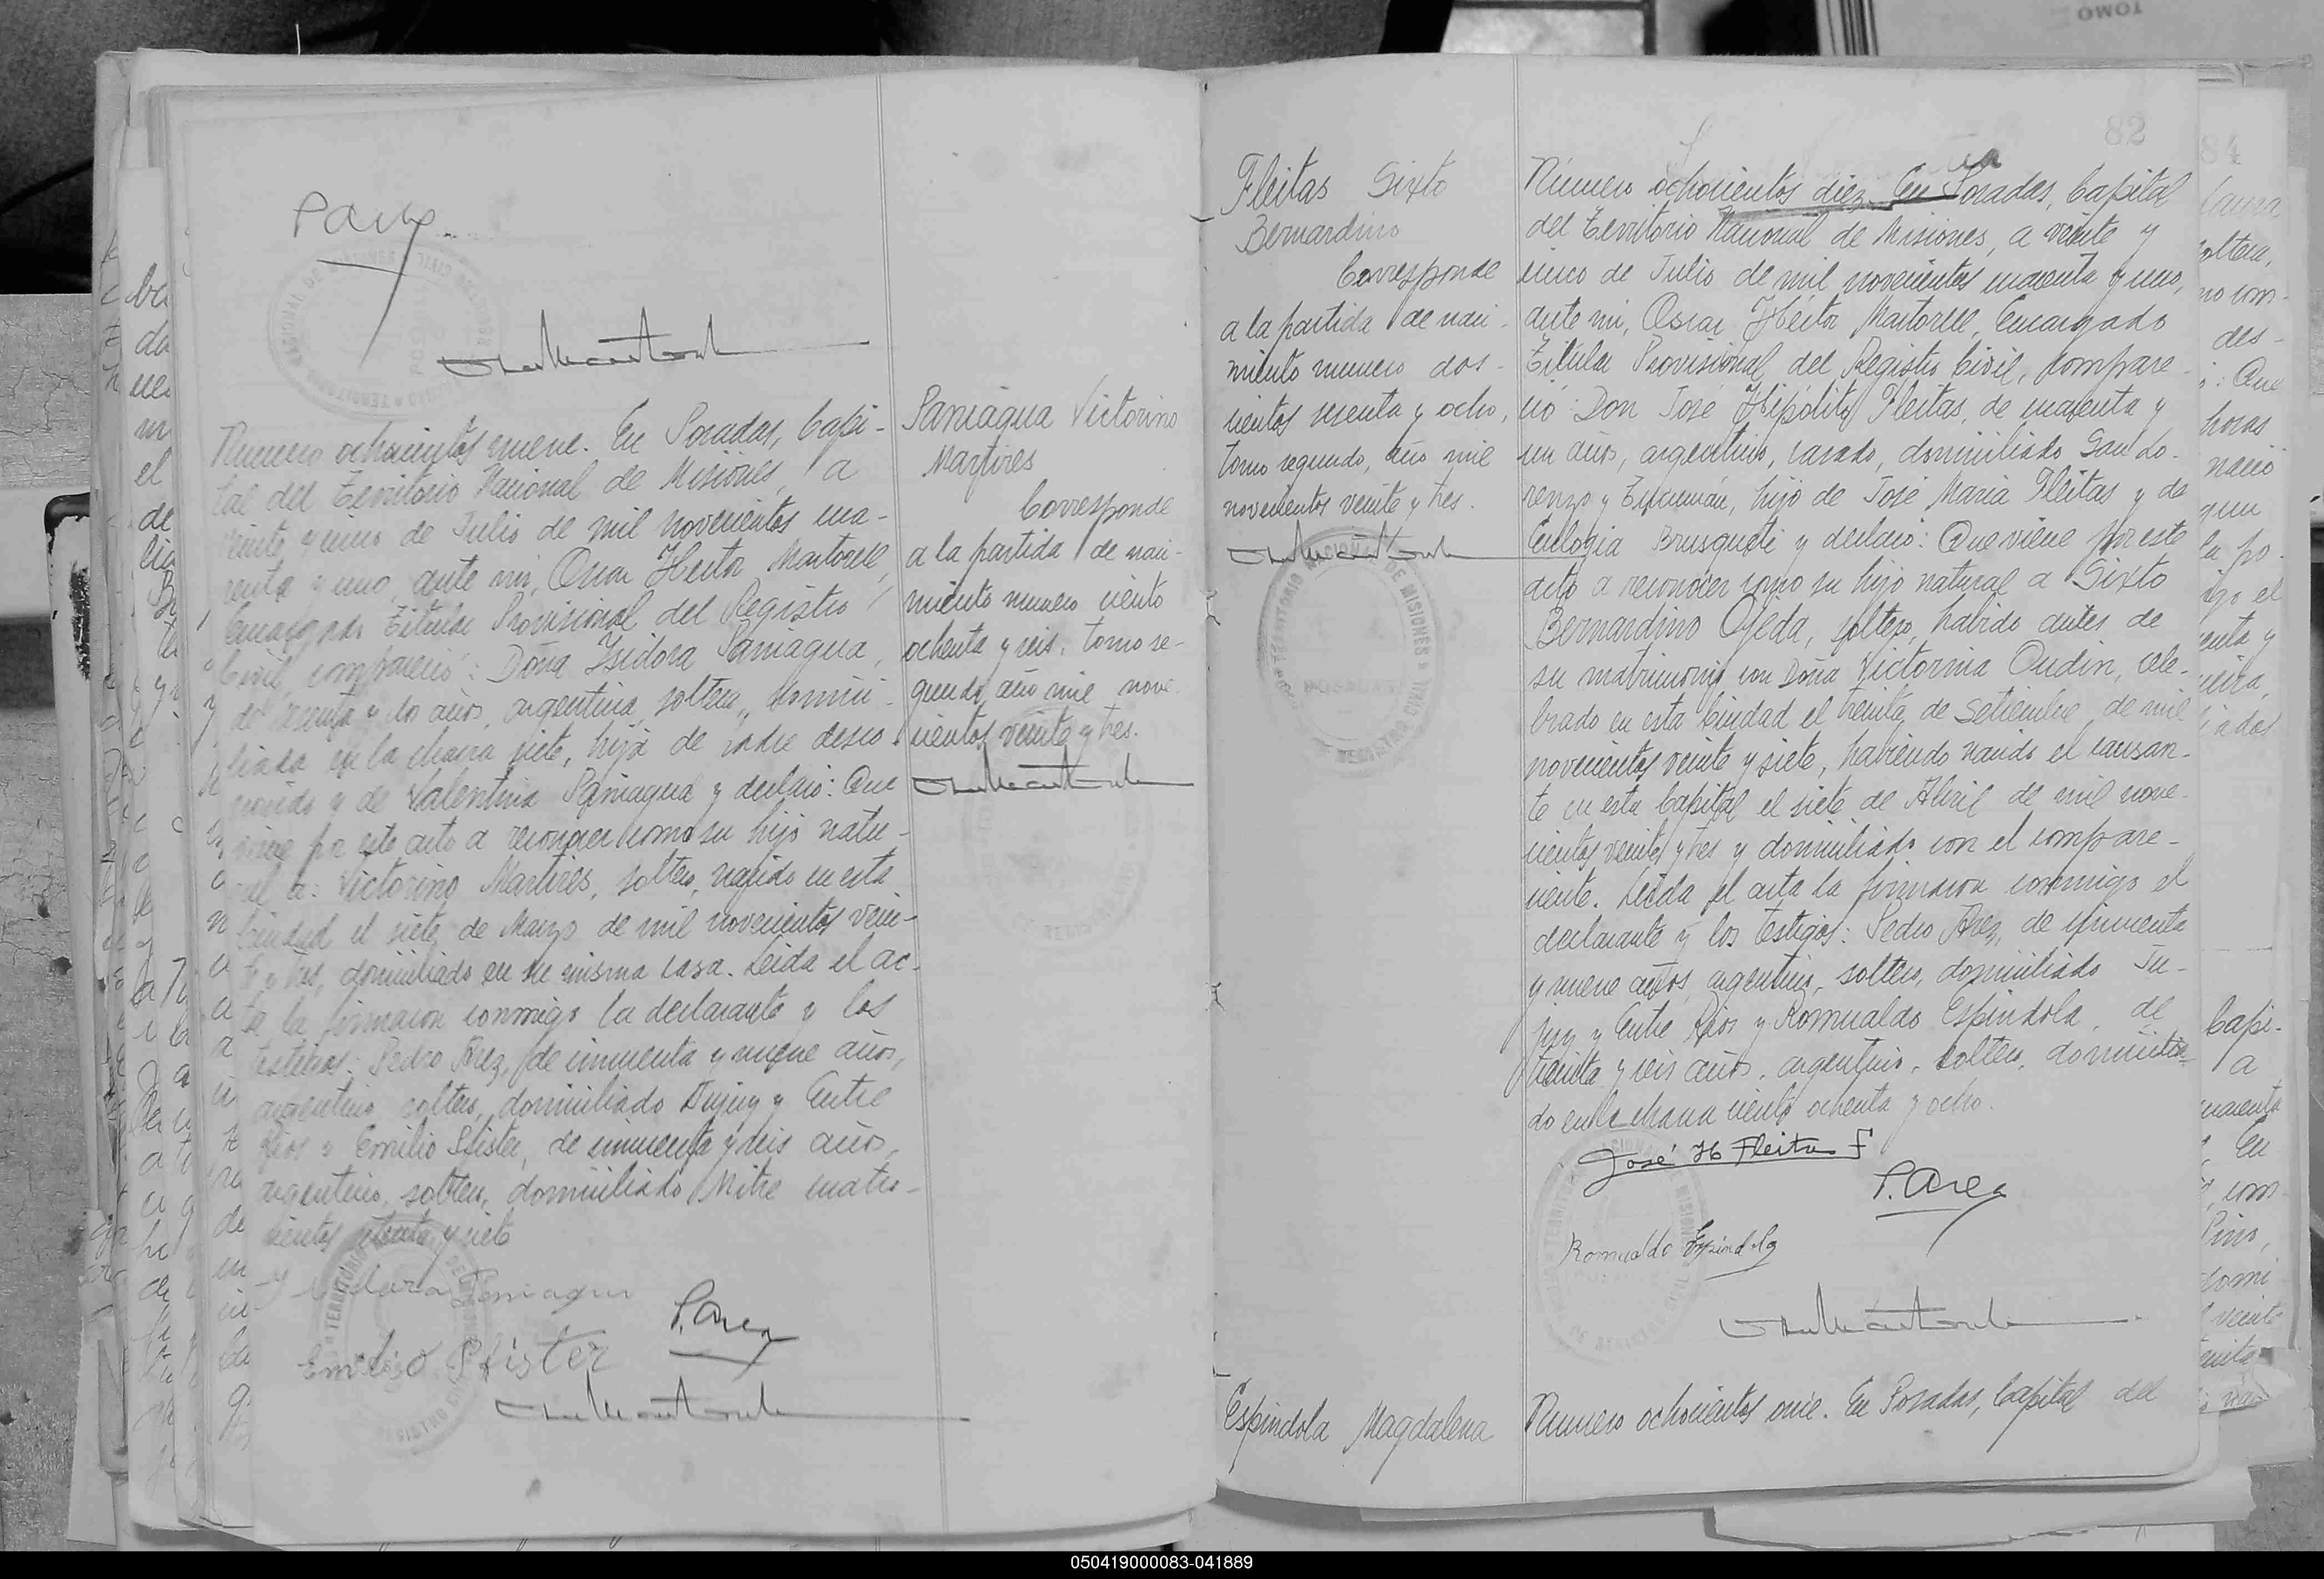 TOMO
82
84
Número ochocientos nueve. En Posadas, Capi-
tal del Territorio Nacional de Misiones, a
veinte y cinco de Julio de mil novecientos cua-
renta y uno, ante mi, Oscar Hector Martorell,
Encargado Titular Provisional del Registro
Civil, compareció: Doña Isidora Paniagua,
de sesenta y dos años, argentina, soltera, domici-
liada en la chacra siete, hija de padre desco-
nocido y de Valentina Paniagua y declaró: Que
viene por este acto a reconocer como su hijo natu-
ral a: Victorino Martires, soltero, nacido en esta
Ciudad el siete de Marzo de mil novecientos vein-
te y tres, domiciliado en su misma casa. Leida el ac-
ta la firmaron conmigo la declarante y los
testigos: Pedro Arez, de cincuenta y nueve años,
argentino, soltero, domiciliado Jujuy y Entre
Rios y Emilio Pfister, de cincuenta y seis años,
argentino, soltero, domiciliado Mitre cuatro-
cientos setenta y siete
Isidora Paniagua
P. Arez
Emilio Pfister
Paniagua Victorino
Martires
Corresponde
a la partida de naci-
miento numero ciento
ochenta y seis, tomo se-
gundo, año mil nove-
cientos veinte y tres.
Fleitas Sixto
Bernardino
Corresponde
a la partida de naci-
miento numero dos-
cientos sesenta y ocho,
tomo segundo, año mil
novecientos veinte y tres.
Número ochocientos diez. En Posadas, Capital
del Territorio Nacional de Misiones, a veinte y
cinco de Julio de mil novecientos cuarenta y uno,
ante mi, Oscar Héctor Martorell, Encargado
Titular Provisional del Registro Civil, compare-
ció: Don José Hipólito Fleitas, de cuarenta y
un años, argentino, casado, domiciliado San Lo-
renzo y Tucumán, hijo de José Maria Fleitas y de
Eulogia Brusqueti y declaró: Que viene por este
acto a reconocer como su hijo natural a Sixto
Bernardino Ojeda, soltero, habido antes de
su matrimonio con Doña Victorina Oudin, cele-
brado en esta Ciudad el treinta de Setiembre de mil
novecientos veinte y siete, habiendo nacido el causan-
te en esta Capital el siete de Abril de mil nove-
cientos veinte y tres y domiciliado con el compare-
ciente. Leida el acta la firmaron conmigo el
declarante y los testigos: Pedro Arez, de cincuenta
y nueve años, argentino, soltero, domiciliado Ju-
juy y Entre Rios y Romualdo Espindola, de
treinta y seis años, argentino, soltero, domicilia-
do en la chacra ciento ochenta y ocho.
José H Fleitas F
P. Arez
Romualdo Espindola
Espindola Magdalena
Número ochocientos once. En Posadas, Capital del
050419000083-041889